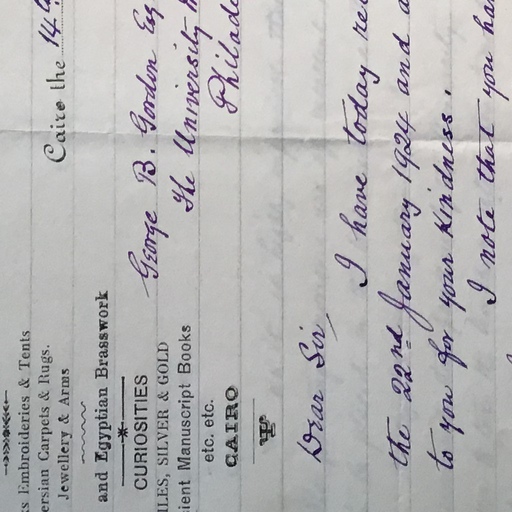 ks Embroideries & Tents
ersian Carpets & Rugs.
Jewellery & Arms
and Egyptian Brasswork
CURIOSITIES
ILES, SILVER & GOLD
cient Manuscript Books
etc. etc.
CAIRO
Cairo the 14th
George B. Gordon Esq
The University M
Philade
Dear Sir,
I have today rec
the 22nd January 1924 and a
to you for your Kindness.
I note that you hav